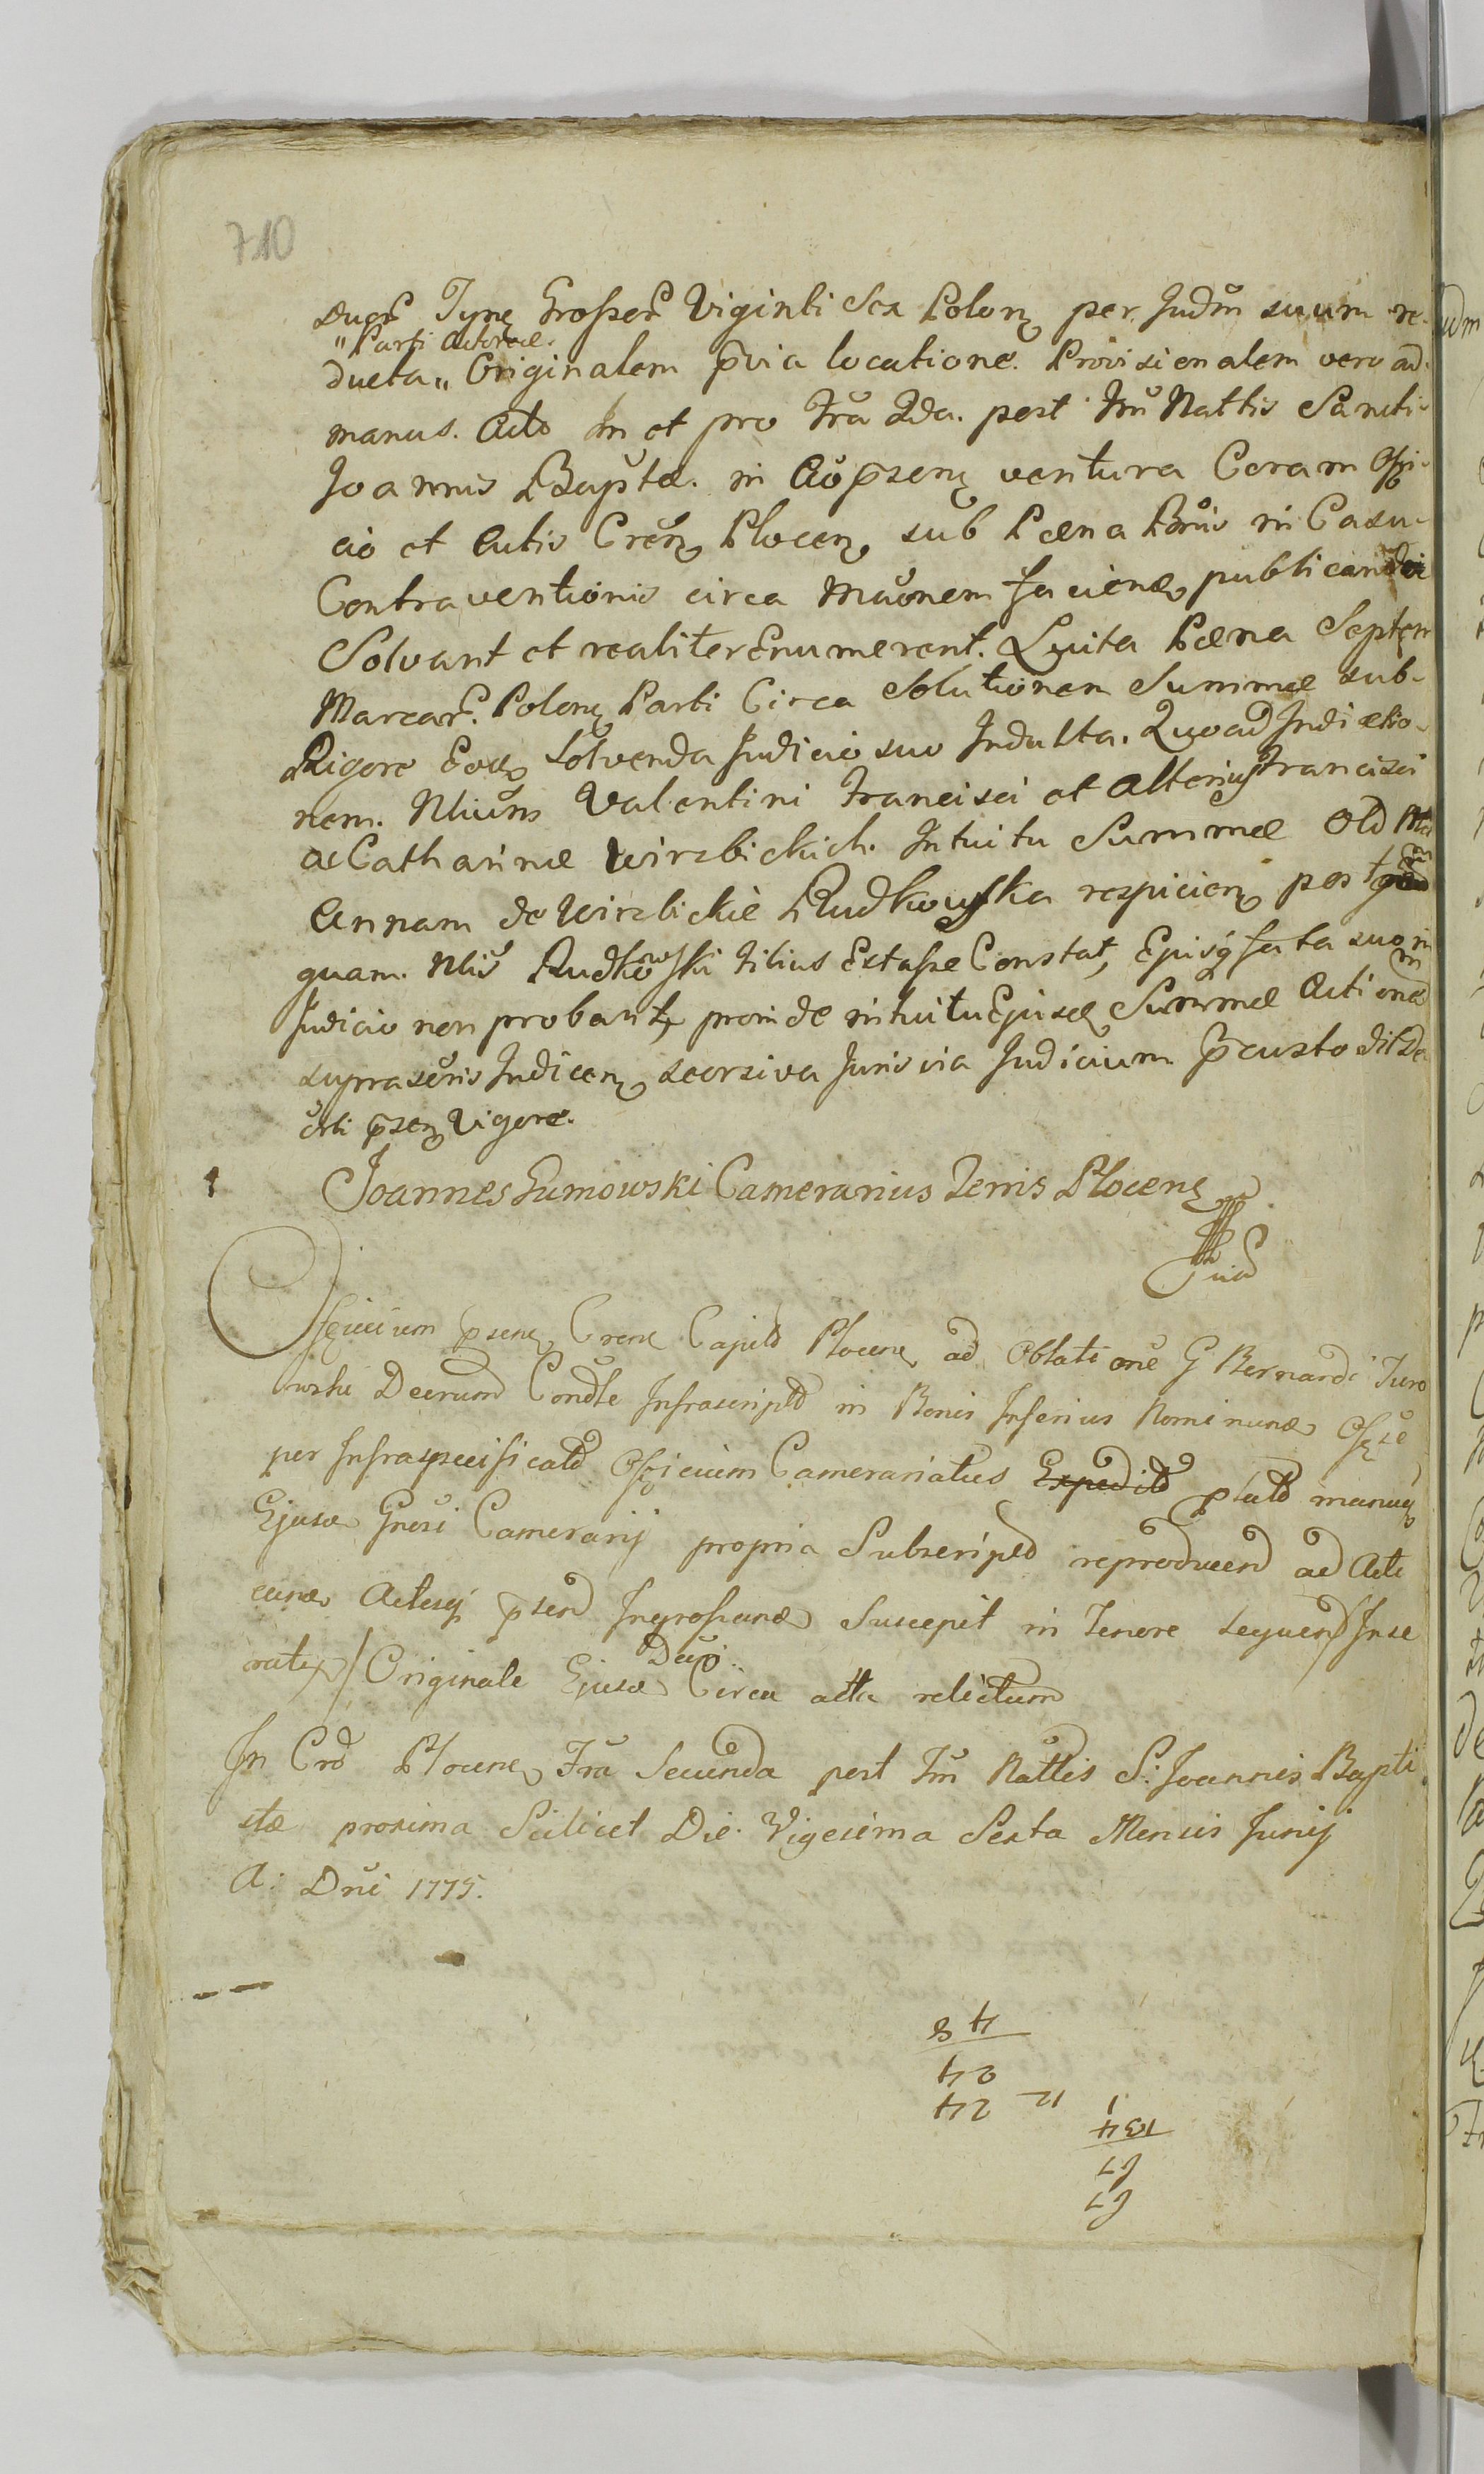 710
Duor Tynf Grossor Viginti Sex Polon per Judm suum re-
"Parti Actoreae.
ducta" Originalem pvia locatione. Provisionalem vero ad
manus. Acto In et pro Fra 2da. post Fm Nattis Sancti
Joannis Baptae. in Ao psen ventura Coram Offi-
cio et Actis Cren Plocen sub Paena Bnis in Casu
Contraventionis circa Maonem faciend publicandae
Solvant et realiter Enumerent. Luita Paena Septem
Marcar. Polon Parti Circa Solutionem Summae sub
Rigore Eod solvenda Judicio suo Indulta. Quoad Indictio-
nem. Nlium Valentini Francisci et alterius Francisci
ac Catharinae Wirzbickich. Intuitu Summae Old
Annam de Wirzbickie Rudkowska respicien post
quam. Nlis Rudkowski filius Extasse Constat, Ejusq fata suo in
Judicio non probant, proinde intuitu Ejusd Summae Actionem
suprascris Indicen seorsiva Juris via Judicium pcustodit De
crti psen Vigore.
Joannes Gumowski Camerarius Terris Plocens
Officium psens Crens Capitle Plocens ad Oblatione G Bernardi Turo
wski Decrum Condle Infrascriptd in Bonis Inferius Nominand Offse
per Infraspecificatd Officium Camerariatus Expeditd platd manuq
Ejusd Gnosi Camerarij propria Subscriptd reproducend ad Acti
cand Actisq psend Ingrossand Suscepit in Tenore sequend / Inse
ratur / Originale Ejusd Decri Circa acta relictum
In Crd Plocens Fra Secunda post Fm Nattis S: Joannis Bapti
stae proxima Scilicet Die Vigesima Sexta Mensis Junij
A: Dni 1775.
67
67
134
1
24 12
24
48